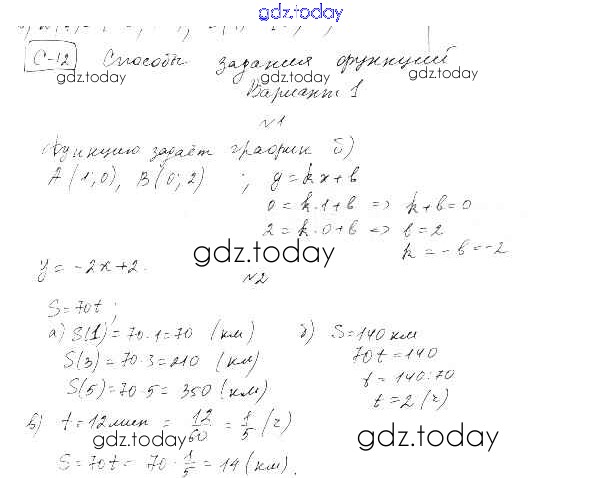 gdz.today
С-12 Способы задания функций
gdz.today gdz.today
Вариант 1
№1
Функцию задаёт график б)
A(1;0), B(0;2) ; y=kx+b
0=k·1+b => k+b=0
2=k·0+b => b=2
k=-b=-2
gdz.today
y=-2x+2.
№2
S=70t;
а) S(1)=70·1=70 (км)
S(3)=70·3=210 (км)
S(5)=70·5=350 (км)
б) t=12мин = 12/60 = 1/5 (ч)
gdz.today
S=70t=70·1/5=14(км).
в) S=140 км
70t=140
t=140:70
t=2 (ч)
gdz.today